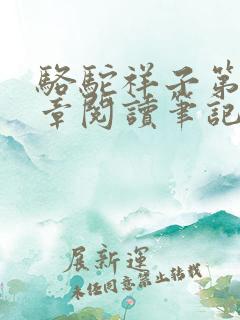 駱駝祥子第
章閱讀筆記
展新運
未任同意禁止轉載